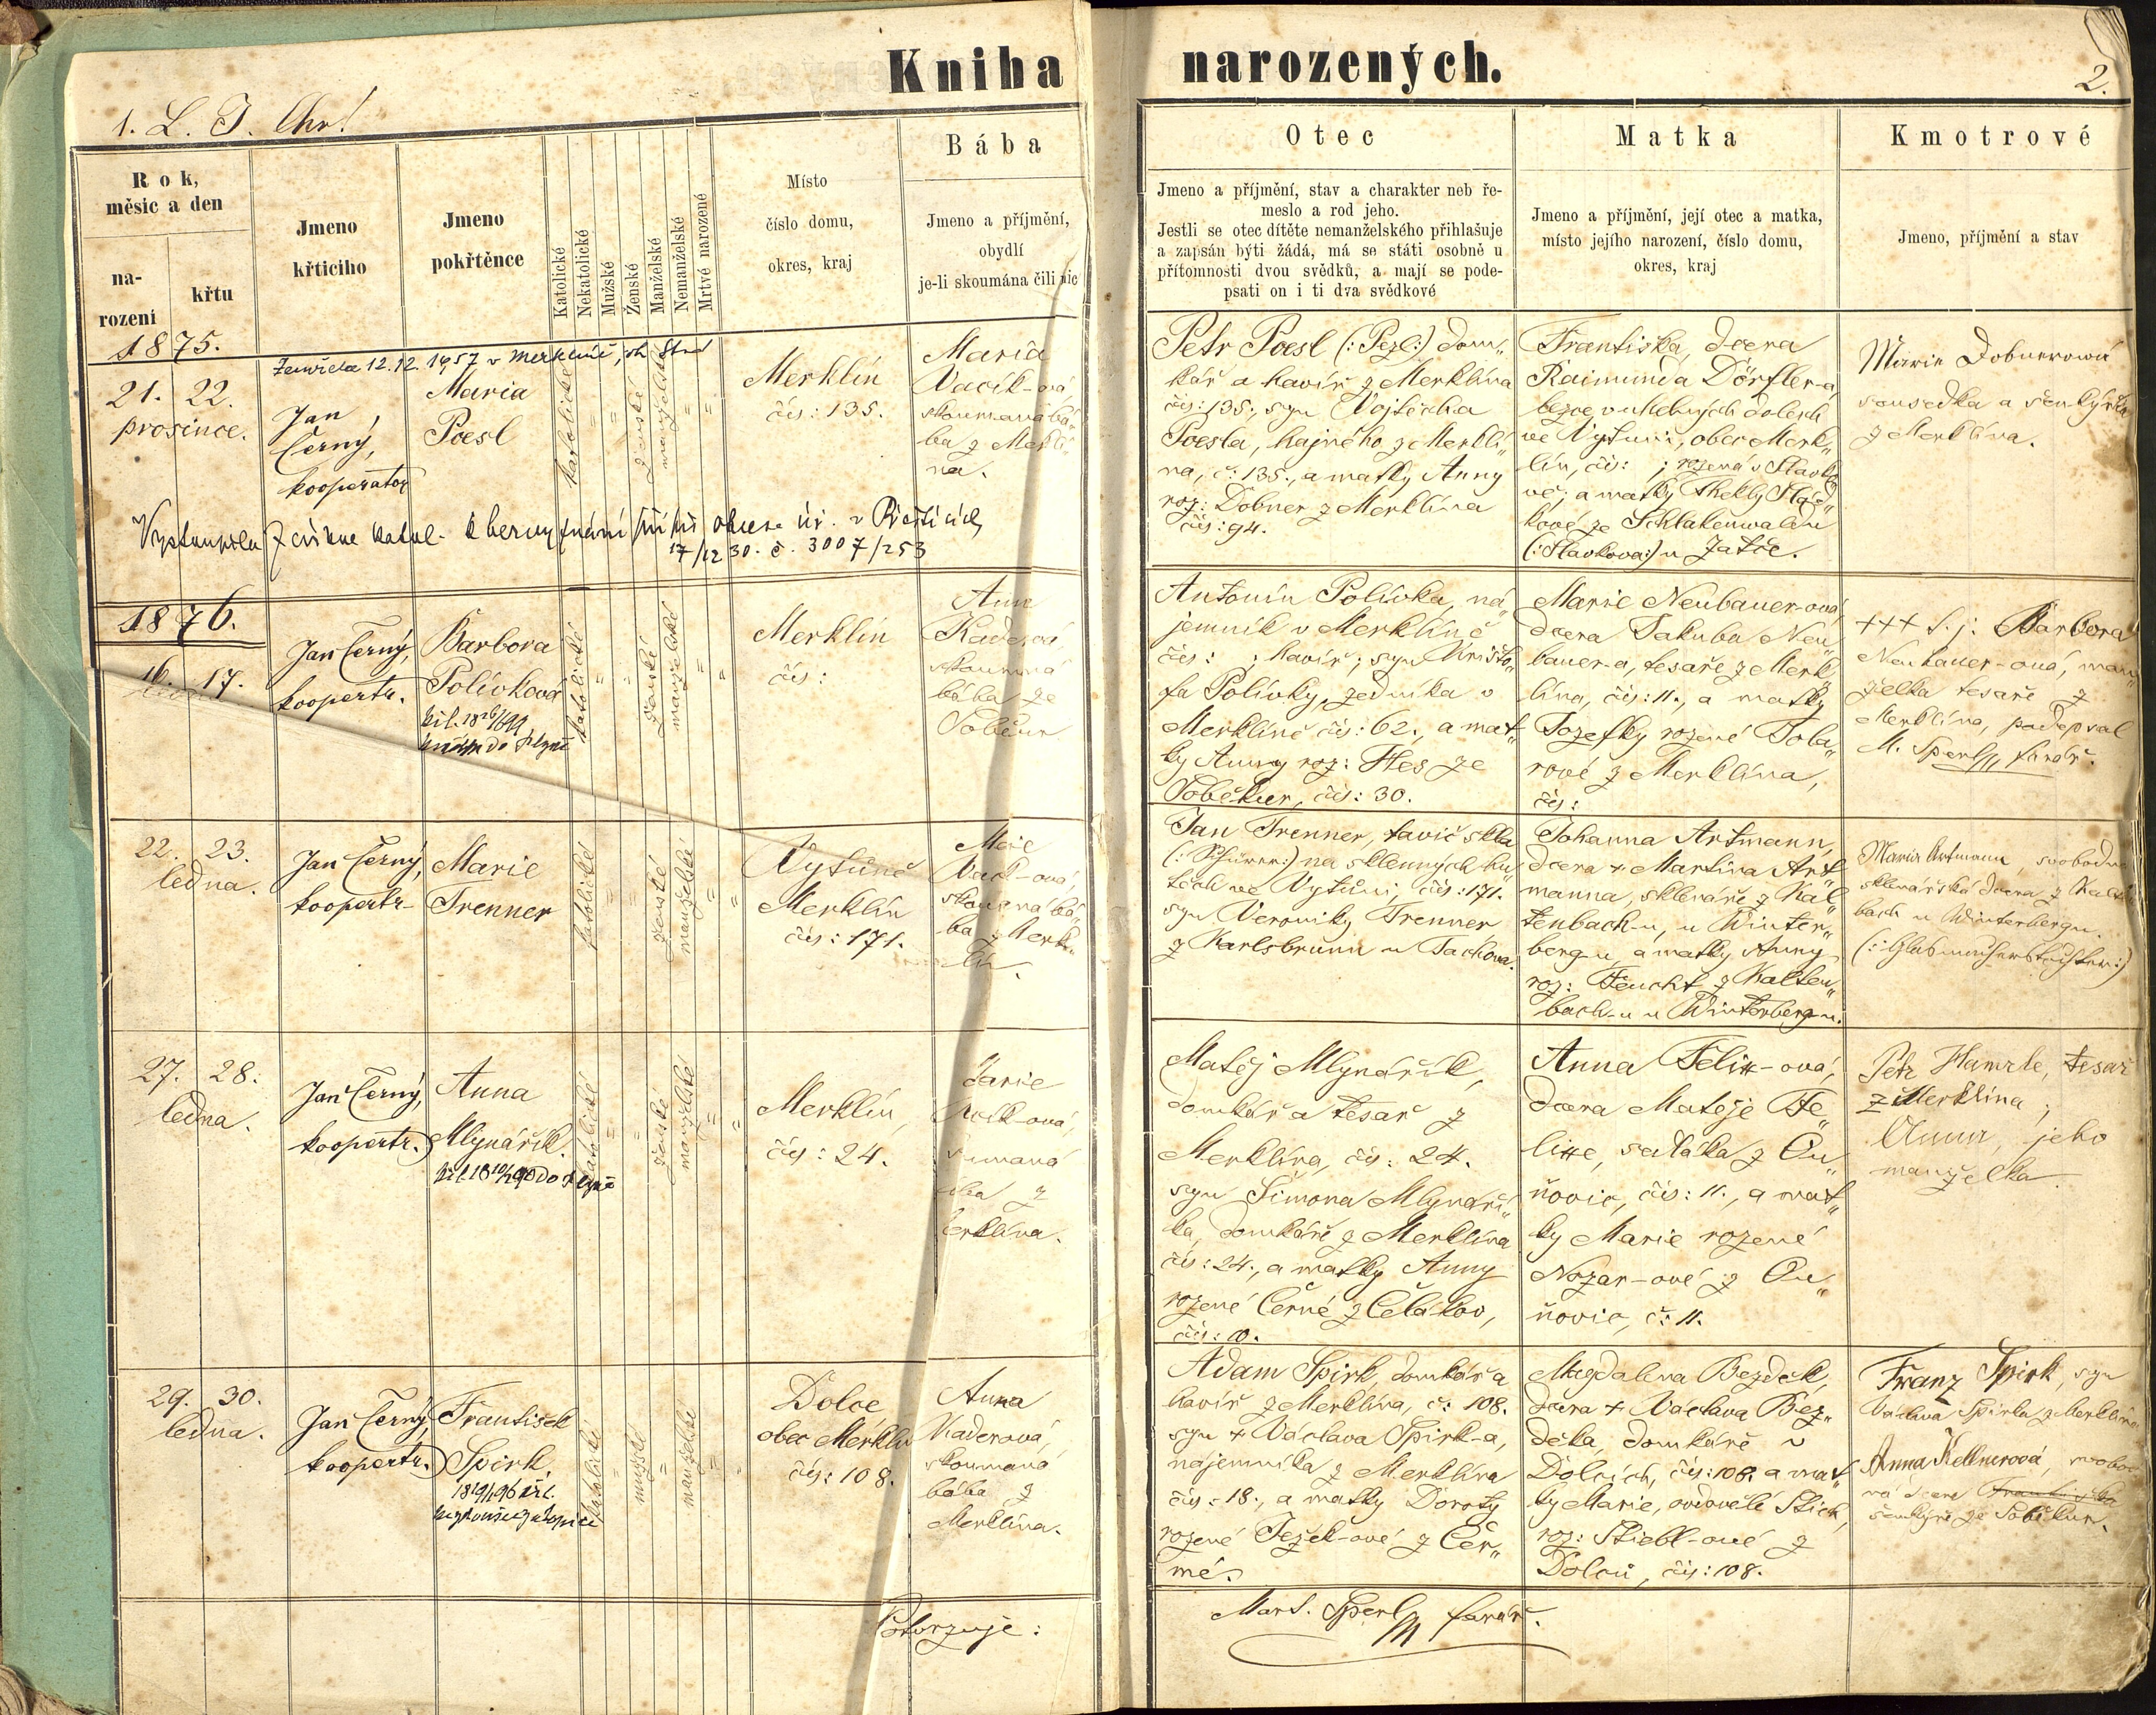 Kniha narozených.
2.
1. L. J. Chr!
Rok,
měsíc a den
na-
rození
křtu
Jmeno
křticího
Jmeno
pokřtěnce
Katolické
Nekatolické
Mužské
Ženské
Manželské
Nemanželské
Mrtvé narozené
Místo
číslo domu,
okres, kraj
Bába
Jmeno a příjmění,
obydlí
je-li skoumána čili nic
Otec
Jmeno a příjmění, stav a charakter neb ře-
meslo a rod jeho.
Jestli se otec dítěte nemanželského přihlašuje
a zapsán býti žádá, má se státi osobně u
přítomnosti dvou svědků, a mají se pode-
psati on i ti dva svědkové
Matka
Jmeno a příjmění, její otec a matka,
místo jejího narození, číslo domu,
okres, kraj
Kmotrové
Jmeno, příjmění a stav
1875.
Zemřela 12.12. 1957 v Merklíně,
21. 22.
prosince.
Jan
Černý,
kooperator
Maria
Poesl
katolické
ženské
manželské
Merklín
čís: 135.
Maria
Vacík-ová
skoumaná bá„
ba z Merklí„
na.
Vystoupila z církve katol.
17/12 30. č. 3007/253
Petr Poesl (:Pezl:) dom„
kář a havíř z Merklína
čís: 135, syn Vojtěcha
Poesla, hajného z Merklí„
na, č: 135., a matky Anny
roz: Dobner z Merklína
čís: 94.
Františka, dcera
Raimunda Dörfler-a,
v uhelných dolech
ve Vytuni, obec Merk„
lín, čís: ; rozená v Slavko„
vě; a matky Thekly
kové ze Schlakenwaldu
(:Slavkova:) u Žatce.
Marie Dobnerowá
sousedka a šenkýřka
z Merklína.
1876.
16. 17.
ledna
Jan Černý,
koopertr.
Barbora
Polívková
katolické
ženské
manželské
Merklín
čís:
Anna
Kaderová,
skoumaná
bába ze
Soběkur
Antonín Polívka, ná„
jemník v Merklíně
čís: ; havíř; syn Krišto„
fa Polívky, zedníka v
Merklíně čís: 62., a mat„
ky Anny roz: Hes ze
Soběkur, čís: 30.
Marie Neubauer-ová,
dcera Jakuba Neu„
bauer-a, tesaře z Merk„
lína, čís: 11., a matky
Jozefky rozené Toba„
rové z Merklína,
čís:
+++ t.j: Barbora
Neubauer-ová, man„
želka tesaře z
Merklína, podepsal
M. Sperl, farář.
22. 23.
ledna.
Jan Černý,
koopertr.
Marie
Trenner
katolické
ženské
manželské
Vytůně
Merklín
čís: 171.
Marie
Vacík-ová,
skoumaná bá„
ba z Merk„
lín.
Jan Trenner, tavič skla
(:Schürer:) na sklenných hu„
těch ve Vytůni, čís: 171.
syn Veroniky Trenner
z Karlsbrunn u Tachova.
Johanna Artmann,
dcera + Martina Art„
manna, sklenáře z Kal„
tenbach-u, u Winter„
berg-u, a matky Anny
roz: Feucht z Kalten„
bach-u u Winterberg-u.
Maria Artmann, svobodná
sklenářská dcera z Kalten„
bach u Winterbergu.
(:Glasmacherstochter:)
27. 28.
ledna.
Jan Černý,
koopertr.
Anna
Mlynářík.
katolické
ženské
manželské
Merklín,
čís: 24.
Marie
Vacík-ová,
skoumaná
bába z
Merklína.
Matěj Mlynářík,
domkář a tesař z
Merklína, čís: 24.
syn Šimona Mlynaří„
ka, domkáře z Merklína
čís: 24., a matky Anny
rozené Černé z Čelakov,
čís: 10.
Anna Felix-ová,
dcera Matěje Fe„
lixe, sedláka z Ou„
ňovic, čís: 11., a mat„
ky Marie rozené
Nozar-ové z Ou„
ňovic, č: 11.
Petr Hamrle, tesař
z Merklína;
Anna, jeho
manželka.
29. 30.
ledna.
Jan Černý,
koopertr.
František
Spirk.
katolické
mužské
manželské
Dolce
obec Merklín
čís: 108.
Anna
Kaderová,
skoumaná
bába z
Merklína.
Adam Spirk, domkář a
havíř z Merklína, č: 108.
syn + Václava Spirk-a,
nájemníka z Merklína
čís: 18., a matky Doroty
rozené Ježek-ové z Čer„
mé.
Magdalena Bezdek,
dcera + Václava Bez„
děka, domkáře v
Dolcích, čís: 108. a mat„
ky Marie, ovdovělé Stich,
roz: Stiebl-ové z
Dolců, čís: 108.
Franz Spirk, syn
Václava Spirka z Merklína
Anna Kellnerová, svobod
ná dcera
šenkýře ze Soběkur.
Potvrzuje:
Mart. Sperl farář.